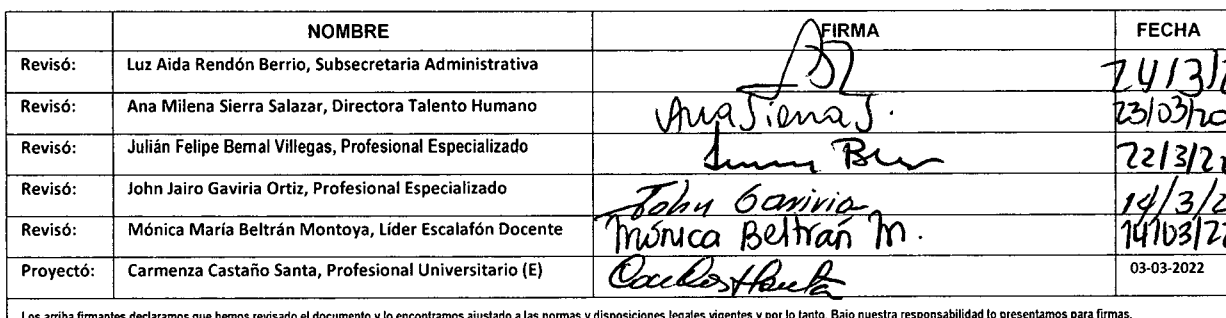 NOMBRE FIRMA FECHA
Revisó: Luz Aida Rendón Berrio, Subsecretaria Administrativa 24/3/2
Revisó: Ana Milena Sierra Salazar, Directora Talento Humano Ana Sierra S. 23/03/20
Revisó: Julián Felipe Bernal Villegas, Profesional Especializado 22/3/22
Revisó: John Jairo Gaviria Ortiz, Profesional Especializado John Gaviria 14/3/2
Revisó: Mónica María Beltrán Montoya, Líder Escalafón Docente Mónica Beltrán M. 14/03/22
Proyectó: Carmenza Castaño Santa, Profesional Universitario (E) 03-03-2022
Los arriba firmantes declaramos que hemos revisado el documento y lo encontramos ajustado a las normas y disposiciones legales vigentes y por lo tanto. Bajo nuestra responsabilidad lo presentamos para firmas.